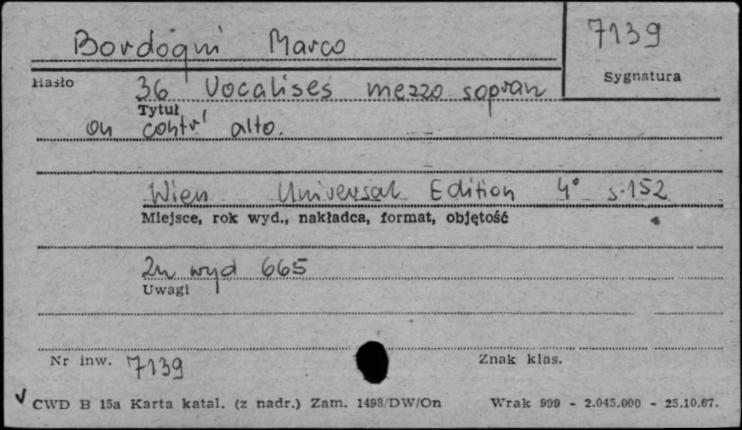 Bordogni Marco
7139
Hasło
Sygnatura
36 Vocalises mezzo sopran
Tytuł
ou contr' alto.
Wien Universal Edition 4° s.152
Miejsce, rok wyd., nakładca, format, objętość
zn wyd 665
Uwagi
Nr inw. 7139
Znak klas.
CWD B 15a Karta katal. (z nadr.) Zam. 1498/DW/On
Wrak 999 - 2.045.000 - 25.10.67.